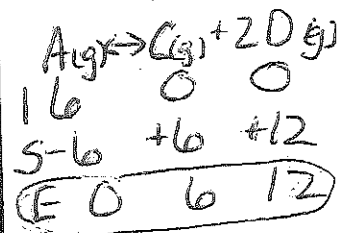 A(g) ↔ C(g) + 2D(g)
I 6 0 0
S -6 +6 +12
E 0 6 12